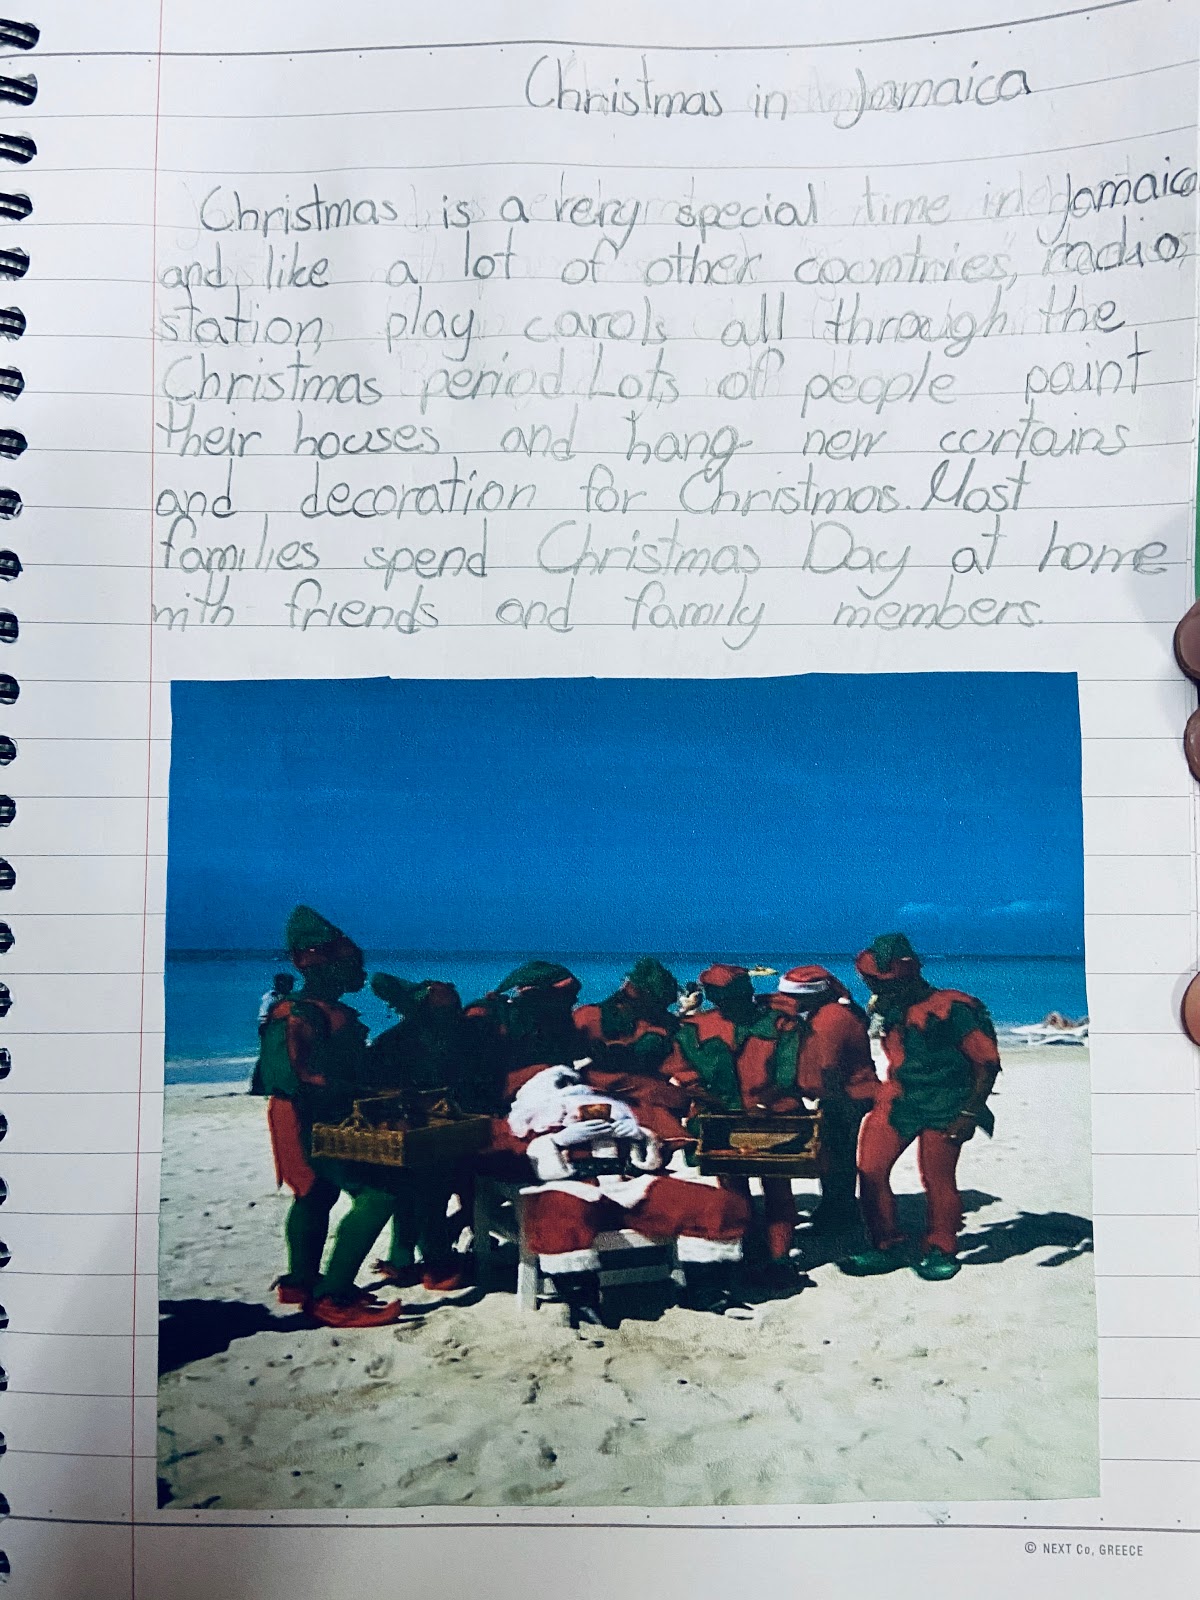 Christmas in Jamaica
Christmas is a very special time in Jamaica
and like a lot of other countries, radio
station play carols all through the
Christmas period. Lots of people paint
their houses and hang new curtains
and decoration for Christmas. Most
families spend Christmas Day at home
with friends and family members.
© NEXT Co, GREECE